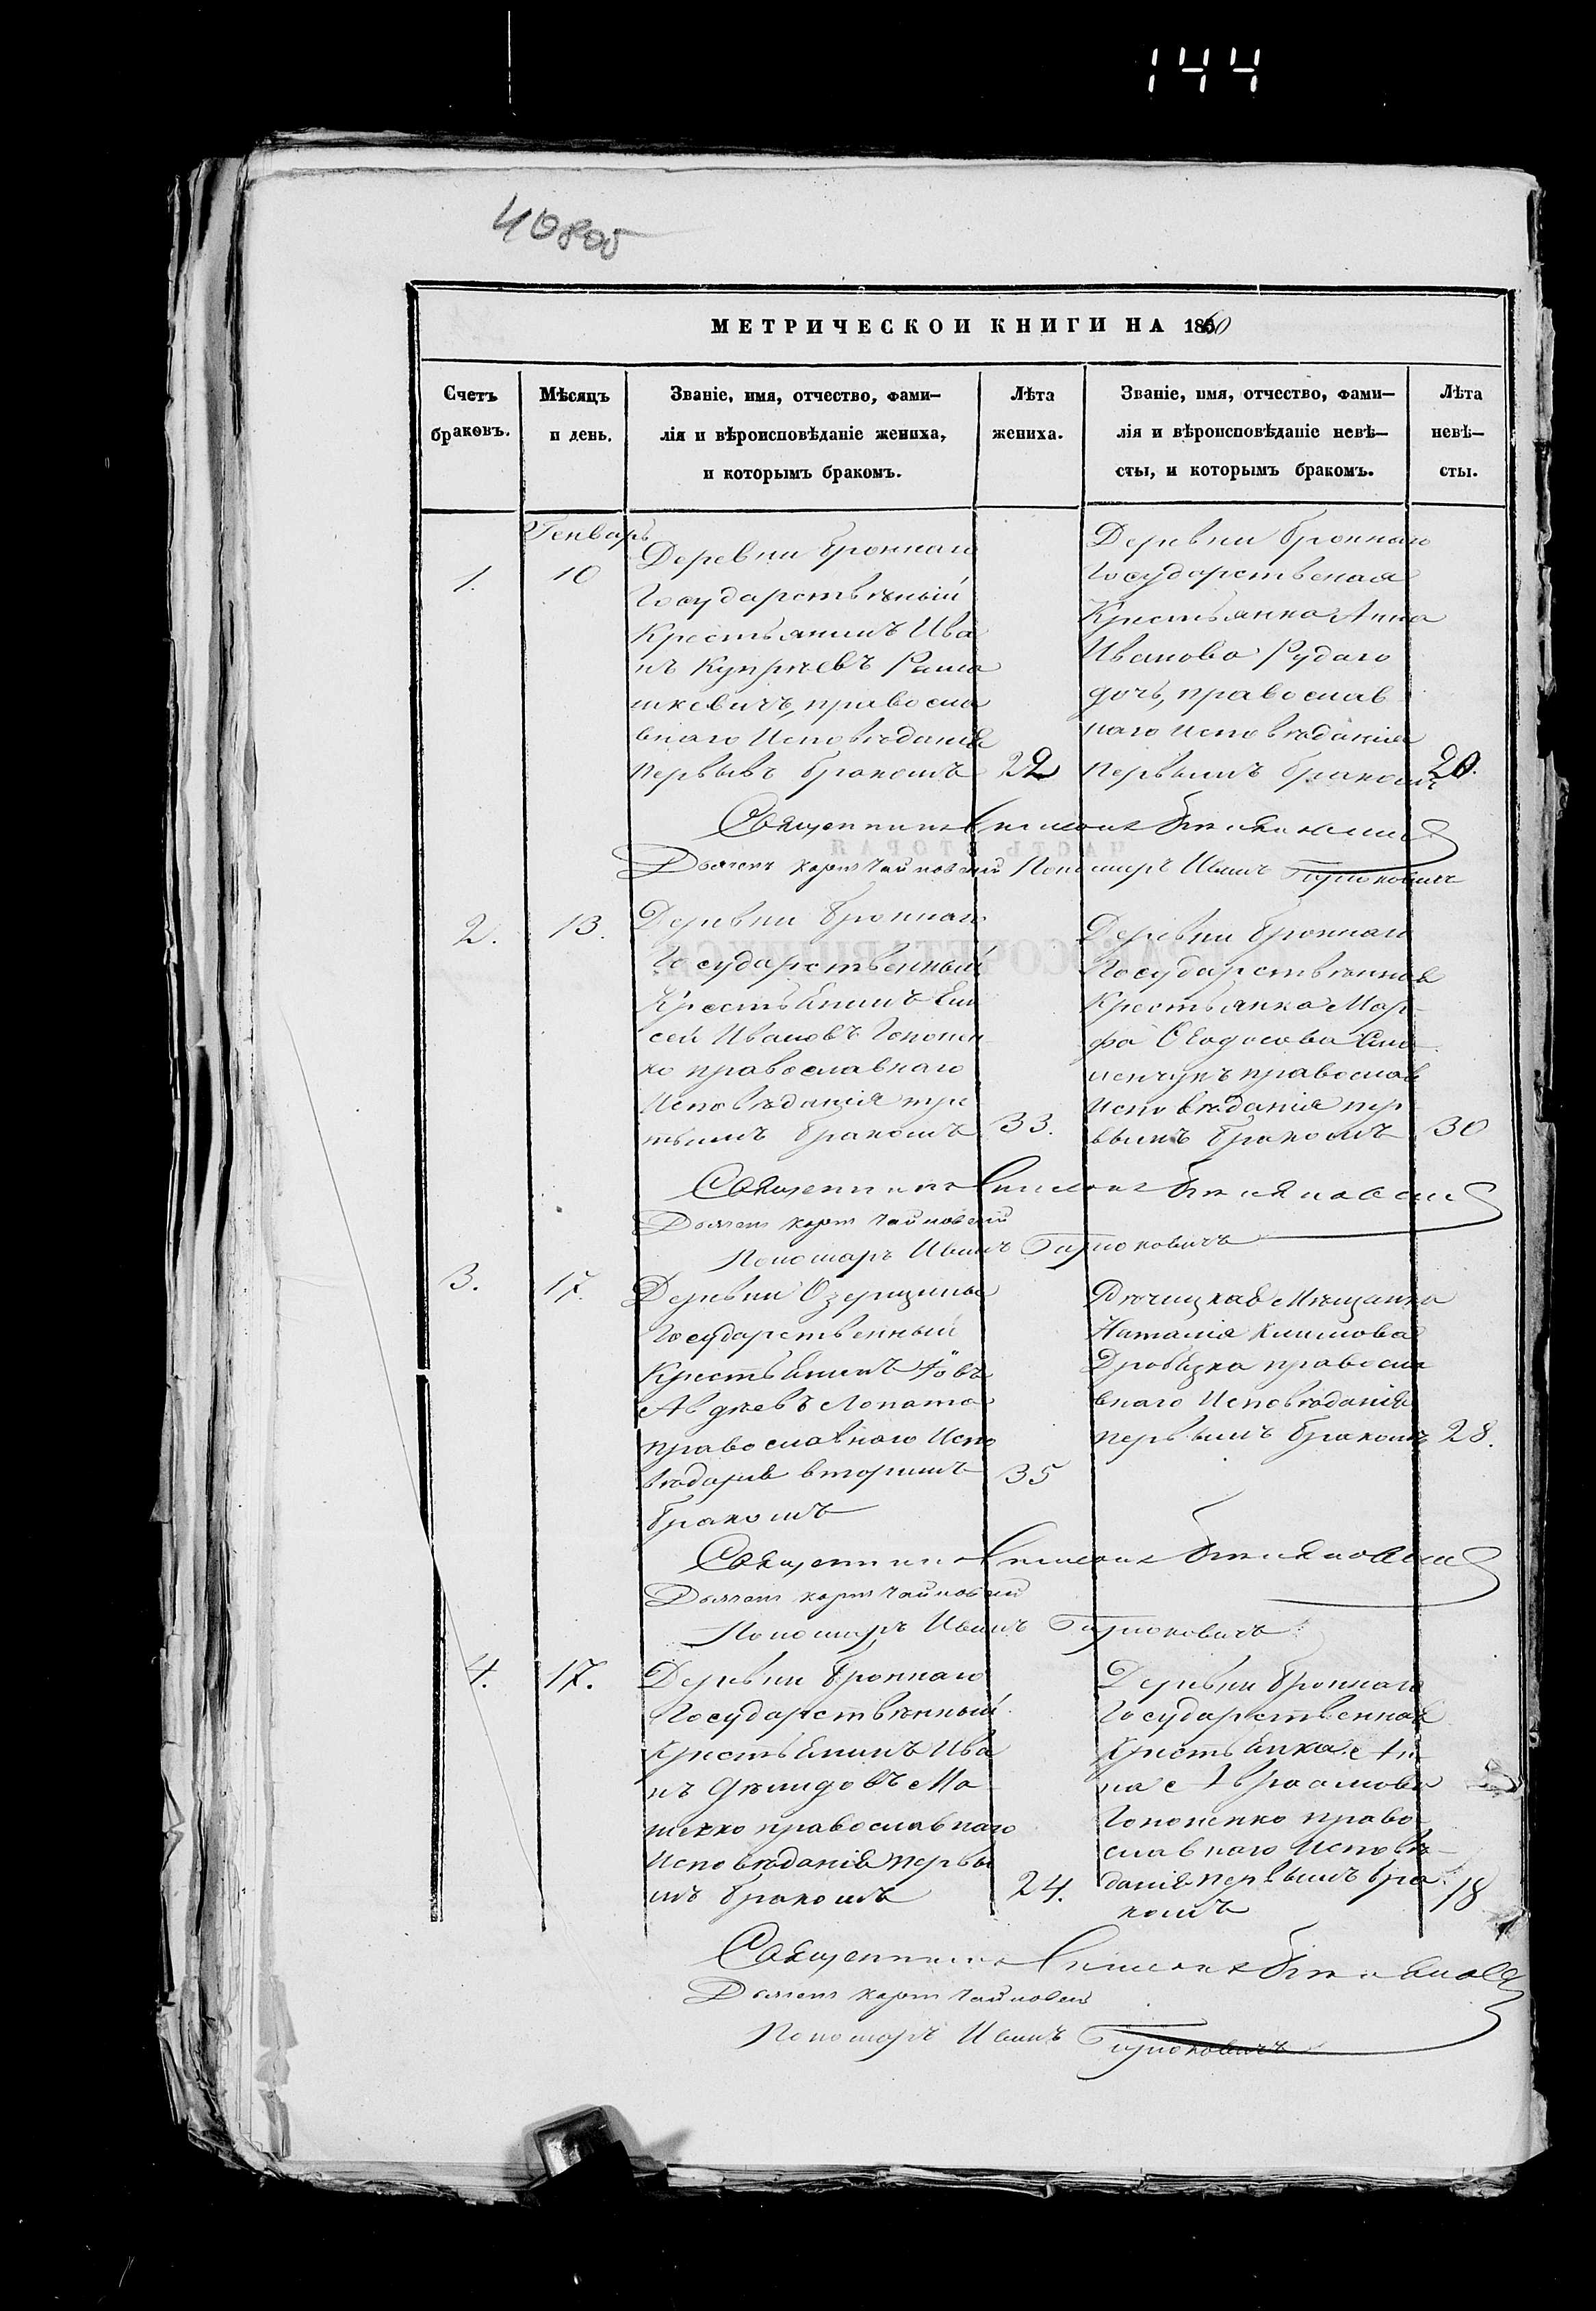 144
408об
МЕТРИЧЕСКОЙ КНИГИ НА 1860
Счетъ
браковъ.
Мѣсяцъ
и день.
Званіе, имя, отчество, фами–
лія и вѣроисповѣданіе жениха,
и которымъ бракомъ.
Лѣта
жениха.
Званіе, имя, отчество, фами–
лія и вѣроисповѣданіе невѣ–
сты, и которымъ бракомъ.
Лѣта
невѣ–
сты.
Генварь
1.
10
Деревни Броннаго
Государствѣный
Крестьянинъ Ива
нъ Купрѣевъ
шкевичъ, правосла
внаго Исповѣданія
Первывъ бракомъ
22
Деревни Броннаго
Государственая
Крестьянка Анна
Иванова Рудаго
дочь, православ
наго исповѣданія
Первымъ бракомъ
20.
Священникъ Симеонъ
Дьячекъ Чайковскій Пономарь Иванъ
2.
13.
Деревни Броннаго
Государственный
Крестьянинъ Ели
сей Ивановъ Гопонен
ко православнаго
Исповѣданія тре
тьимъ бракомъ
33.
Деревни Броннаго
Государствѣнная
Крестьянка Мар
фа Ѳеодосова
православ
Исповѣданія пер
вымъ бракомъ
30
Священникъ Симеонъ
Дьячекъ Чайковскій
Пономарь Иванъ
3.
17.
Деревни Озерщины
Государственный
Крестьянинъ Іовъ
Авдѣевъ Лопата
православнаго Испо
вѣданія вторымъ
бракомъ
35
Рѣчицкая Мѣщанка
Наталія Климова
Дробица правосла
внаго Исповѣданія
первымъ бракомъ
28.
Священникъ Симеонъ
Дьячекъ Чайковскій
Пономарь Иванъ
4.
17.
Деревни Броннаго
Государствѣнный
Крестьянинъ Ива
нъ Демидовъ Ма
православнаго
Исповѣданія первы
мъ бракомъ
24.
Деревни Броннаго
Государственная
Крестьянка Ан
на Авраамова
Гопоненко право
славнаго Исповѣ
данія первымъ бра
комъ
18
Священникъ Симеонъ
Дьячекъ Чайковскій
Пономарь Иванъ